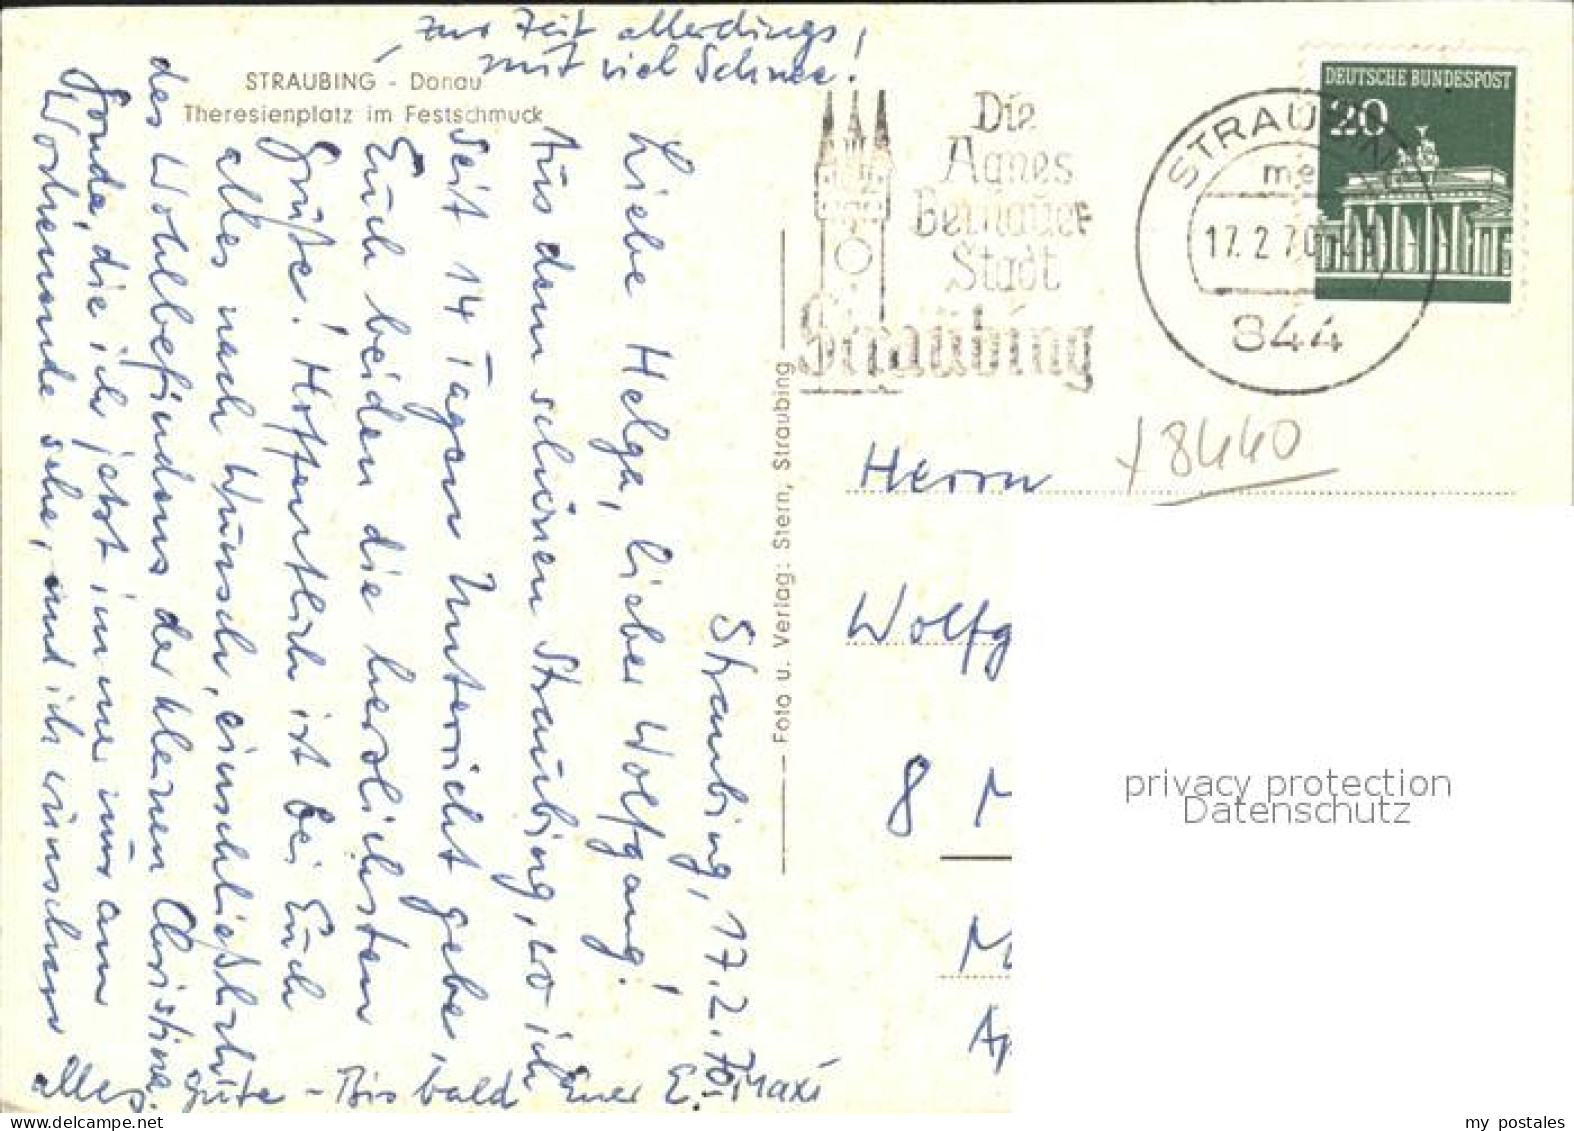 zur Zeit allerdings
mit viel Schnee!
STRAUBING - Donau
Theresienplatz im Festschmuck
Straubing, 17.2.70
Liebe Helga, lieber Wolfgang!
Aus dem schönen Straubing, wo ich
seit 14 Tagen Unterricht gebe,
Euch beiden die herzlichsten
Grüße! Hoffentlich ist bei Euch
alles nach Wunsch, einschließlich
des Wohlbefindens der kleinen Christine.
Gonda, die ich jetzt immer nur am
Wochenende sehe, und ich wünschen
alles Gute - Bis bald Euer E. Maxi
Foto u. Verlag: Stern, Straubing
Die
Agnes
Bernauer
Stadt
Straubing
STRAUBING
17.2.70
844
DEUTSCHE BUNDESPOST
20
8440
Herrn
Wolfg
8 M
M
privacy protection
Datenschutz
my postales